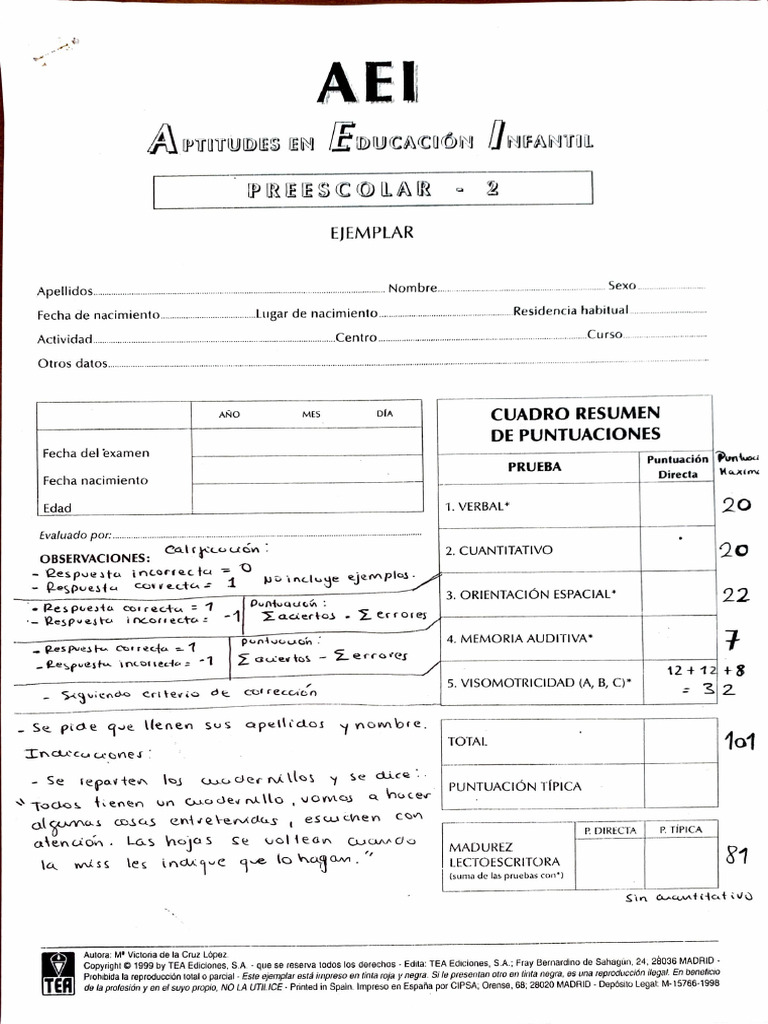 AEI
APTITUDES EN EDUCACIÓN INFANTIL
PREESCOLAR - 2
EJEMPLAR
Apellidos Nombre Sexo
Fecha de nacimiento Lugar de nacimiento Residencia habitual
Actividad Centro Curso
Otros datos
AÑO MES DÍA
Fecha del examen
Fecha nacimiento
Edad
Evaluado por:
OBSERVACIONES: Calificación:
- Respuesta incorrecta = 0
- Respuesta correcta = 1 No incluye ejemplos.
- Respuesta correcta = 1
- Respuesta incorrecta = -1
Puntuación:
Σ aciertos - Σ errores
- Respuesta correcta = 1
- Respuesta incorrecta = -1
Puntuación:
Σ aciertos - Σ errores
- Siguiendo criterio de corrección
- Se pide que llenen sus apellidos y nombre.
Indicaciones:
- Se reparten los cuadernillos y se dice:
"Todos tienen un cuadernillo, vamos a hacer
algunas cosas entretenidas, escuchen con
atención. Las hojas se voltean cuando
la miss les indique que lo hagan."
CUADRO RESUMEN
DE PUNTUACIONES
PRUEBA Puntuación Directa
1. VERBAL* 20
2. CUANTITATIVO 20
3. ORIENTACIÓN ESPACIAL* 22
4. MEMORIA AUDITIVA* 7
5. VISOMOTRICIDAD (A, B, C)* 12 + 12 + 8
= 32
TOTAL 101
PUNTUACIÓN TÍPICA
P. DIRECTA P. TÍPICA
MADUREZ
LECTOESCRITORA 81
(suma de las pruebas con*)
sin cuantitativo
TEA
Autora: Mª Victoria de la Cruz López
Copyright © 1999 by TEA Ediciones, S.A. - que se reserva todos los derechos - Edita: TEA Ediciones, S.A.; Fray Bernardino de Sahagún, 24, 28036 MADRID -
Prohibida la reproducción total o parcial - Este ejemplar está impreso en tinta roja y negra. Si le presentan otro en tinta negra, es una reproducción ilegal. En beneficio
de la profesión y en el suyo propio, NO LA UTILICE - Printed in Spain. Impreso en España por CIPSA; Orense, 68; 28020 MADRID - Depósito Legal: M-15766-1998